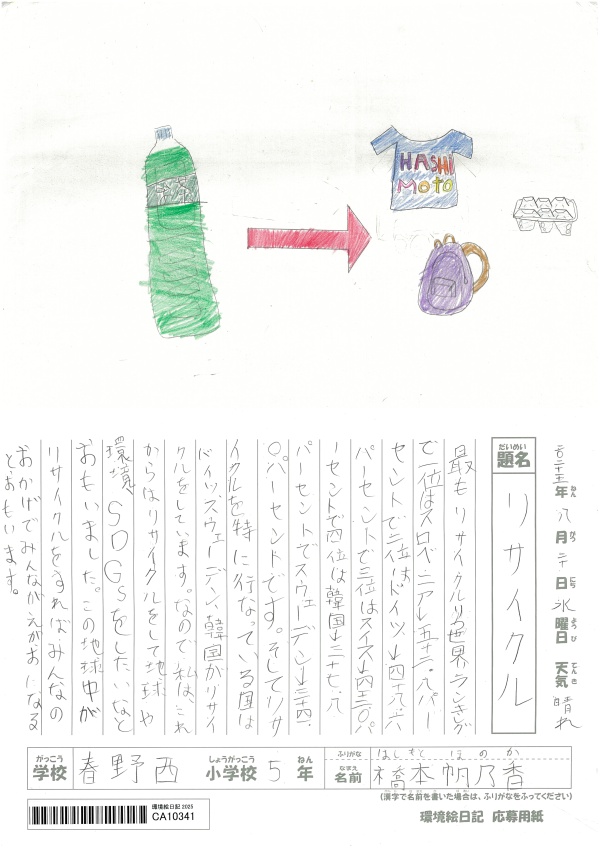 茶
HASHI
MOTO
二〇二五年 八月 二十日 水曜日 天気 晴れ
ねん がつ にち ようび てんき
だいめい
題名 リサイクル
最もリサイクル力世界ランキング
で一位はスロベニア→五十一・八パー
セントで二位はドイツ→四十八・六
パーセントで三位はスイス→四三・〇パ
ーセントで四位は韓国→三十七・八
パーセントでスウェーデン→三十四・
〇パーセントです。そしてリサ
イクルを特に行なっている国は
ドイツ、スウェーデン、韓国がリサイ
クルをしています。なので私は、これ
からはリサイクルをして地球や
環境、SDGsをしたいなと
おもいました。この地球中が
リサイクルをすればみんなの
おかげでみんながえがおになる
とおもいます。
がっこう しょうがっこう ねん
学校 春野西 小学校 5年
ふりがな はしもと ほのか
なまえ
名前 橋本帆乃香
(漢字で名前を書いた場合は、ふりがなをふってください)
環境絵日記 2025
CA10341
環境絵日記 応募用紙